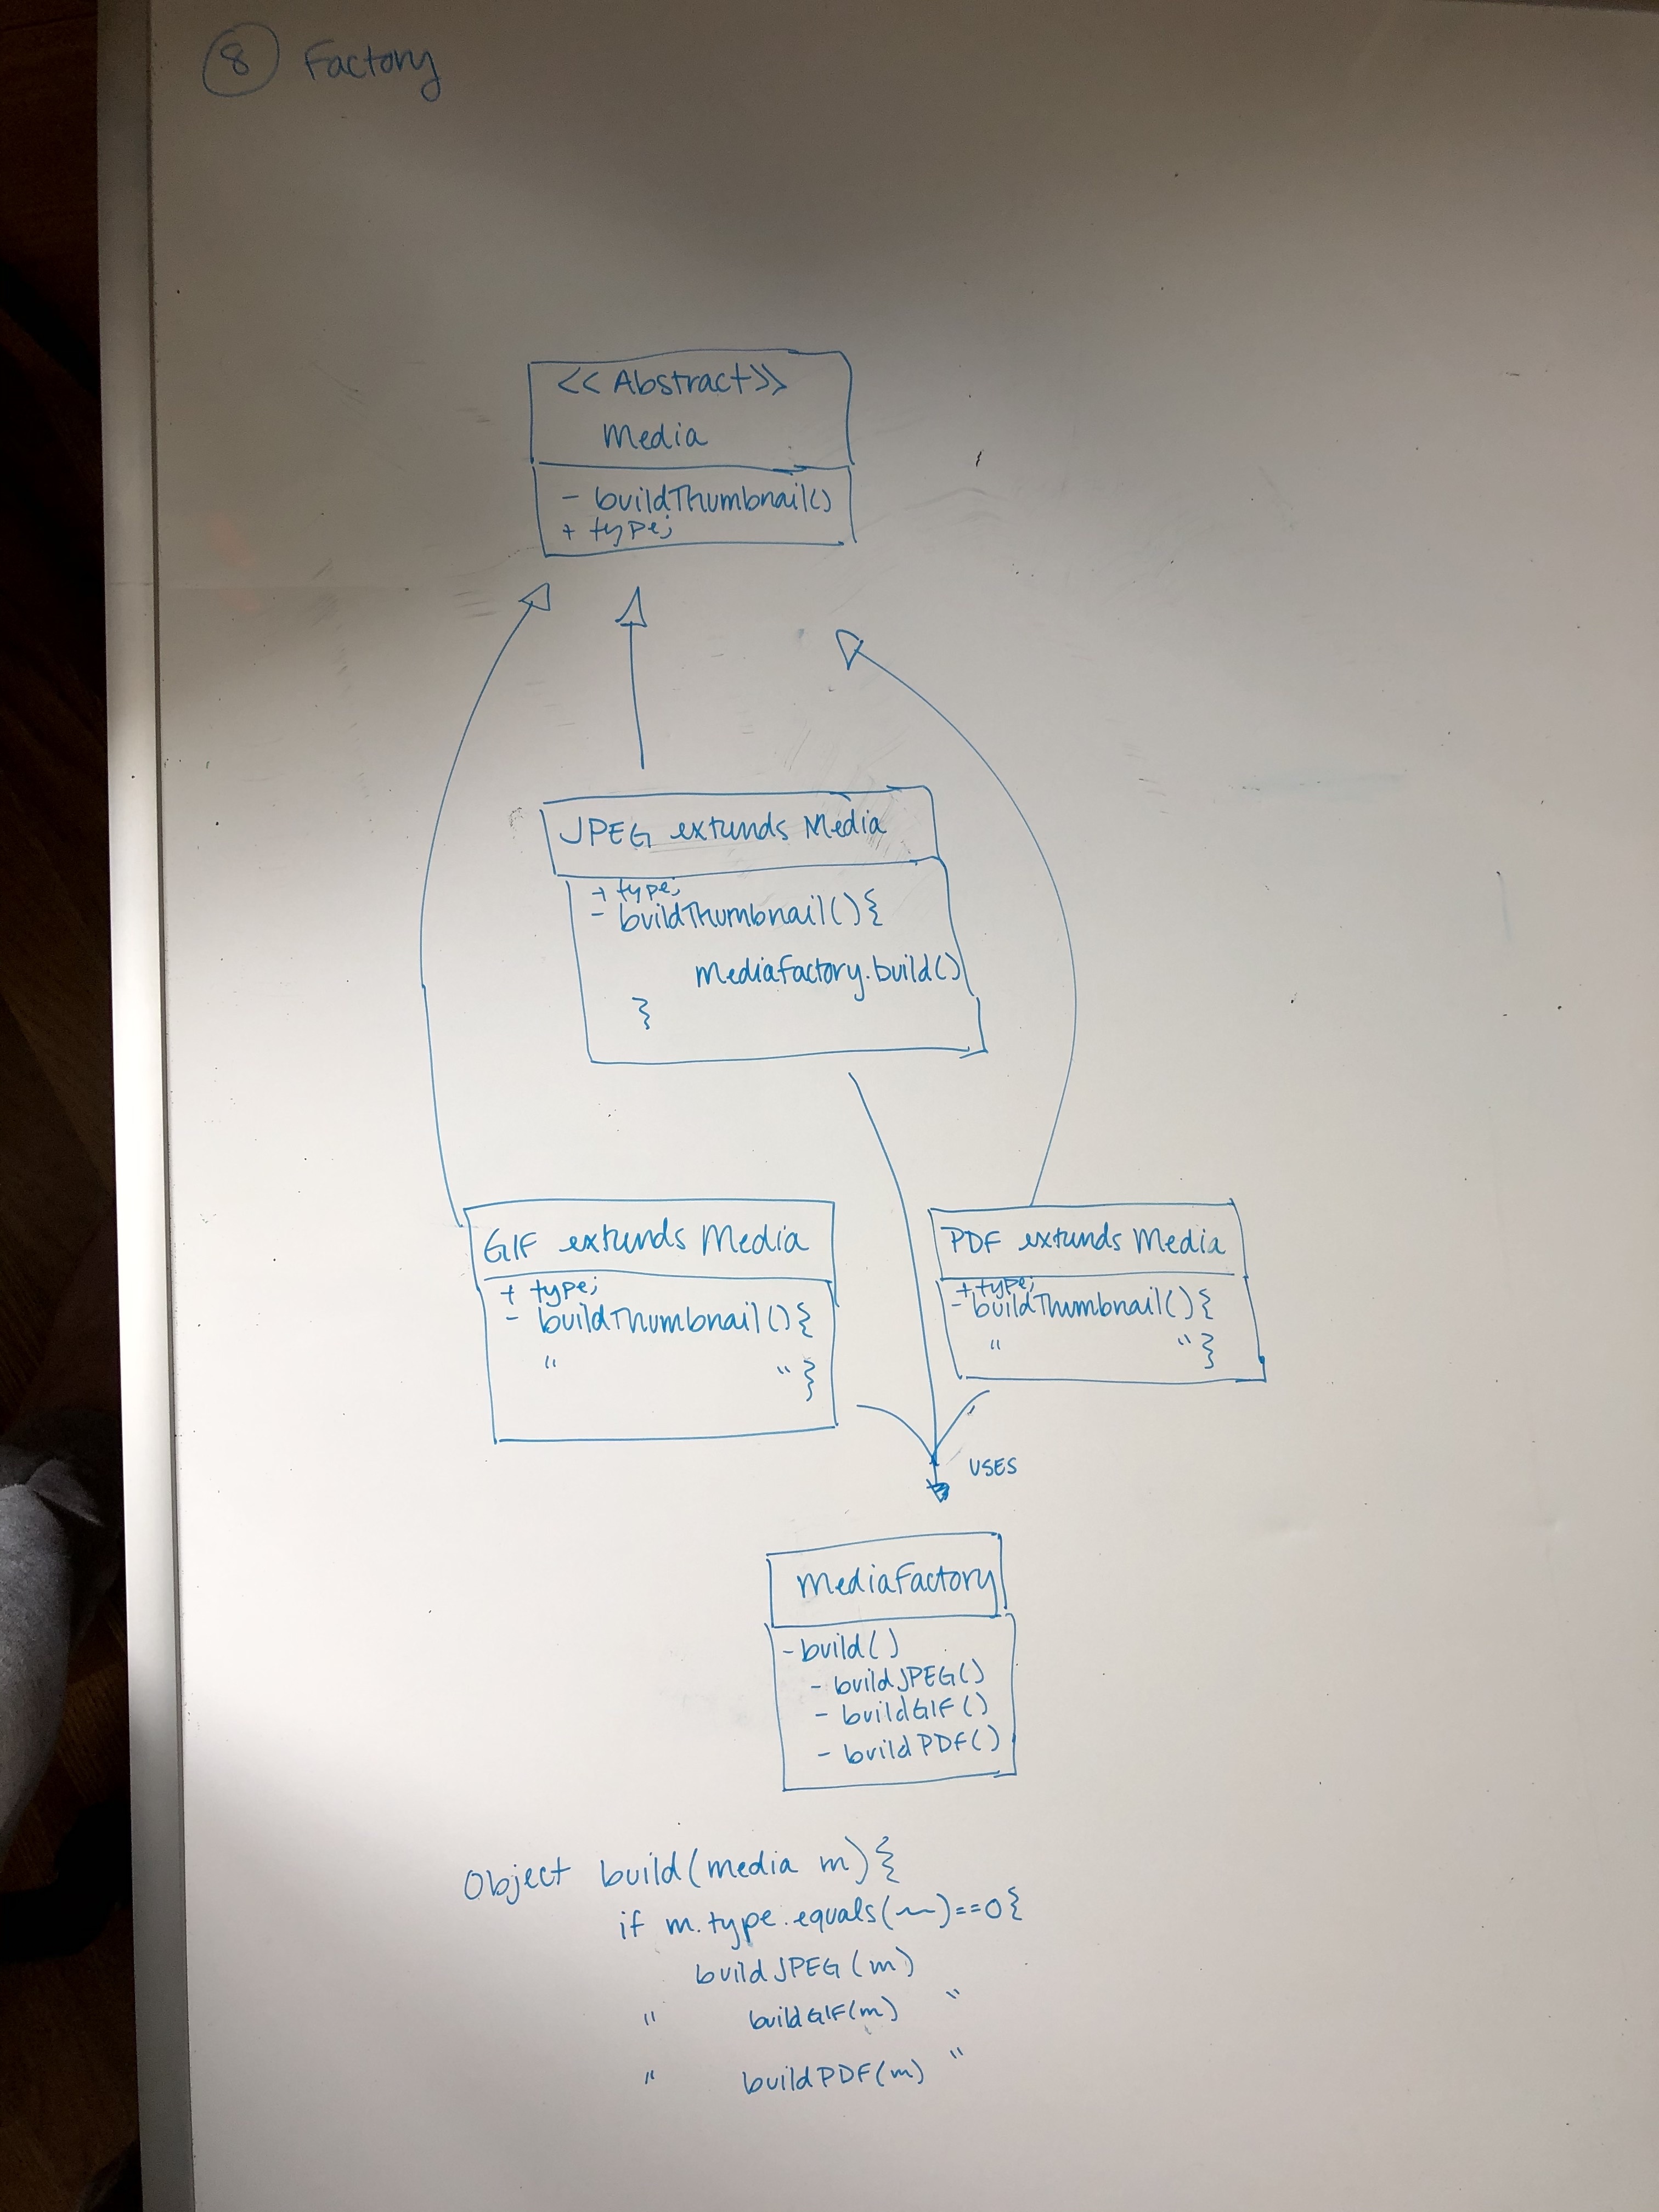 8 Factory
<< Abstract >>
Media
- buildThumbnail()
+ type;
JPEG extends Media
+ type;
- buildThumbnail(){
mediaFactory.build()
}
GIF extends Media
+ type;
- buildThumbnail(){
" " }
PDF extends Media
+ type;
- buildThumbnail(){
" " }
USES
mediaFactory
- build()
- buildJPEG()
- buildGIF()
- buildPDF()
Object build(media m){
if m.type.equals(~)==0{
buildJPEG(m)
" buildGIF(m) "
" buildPDF(m) "